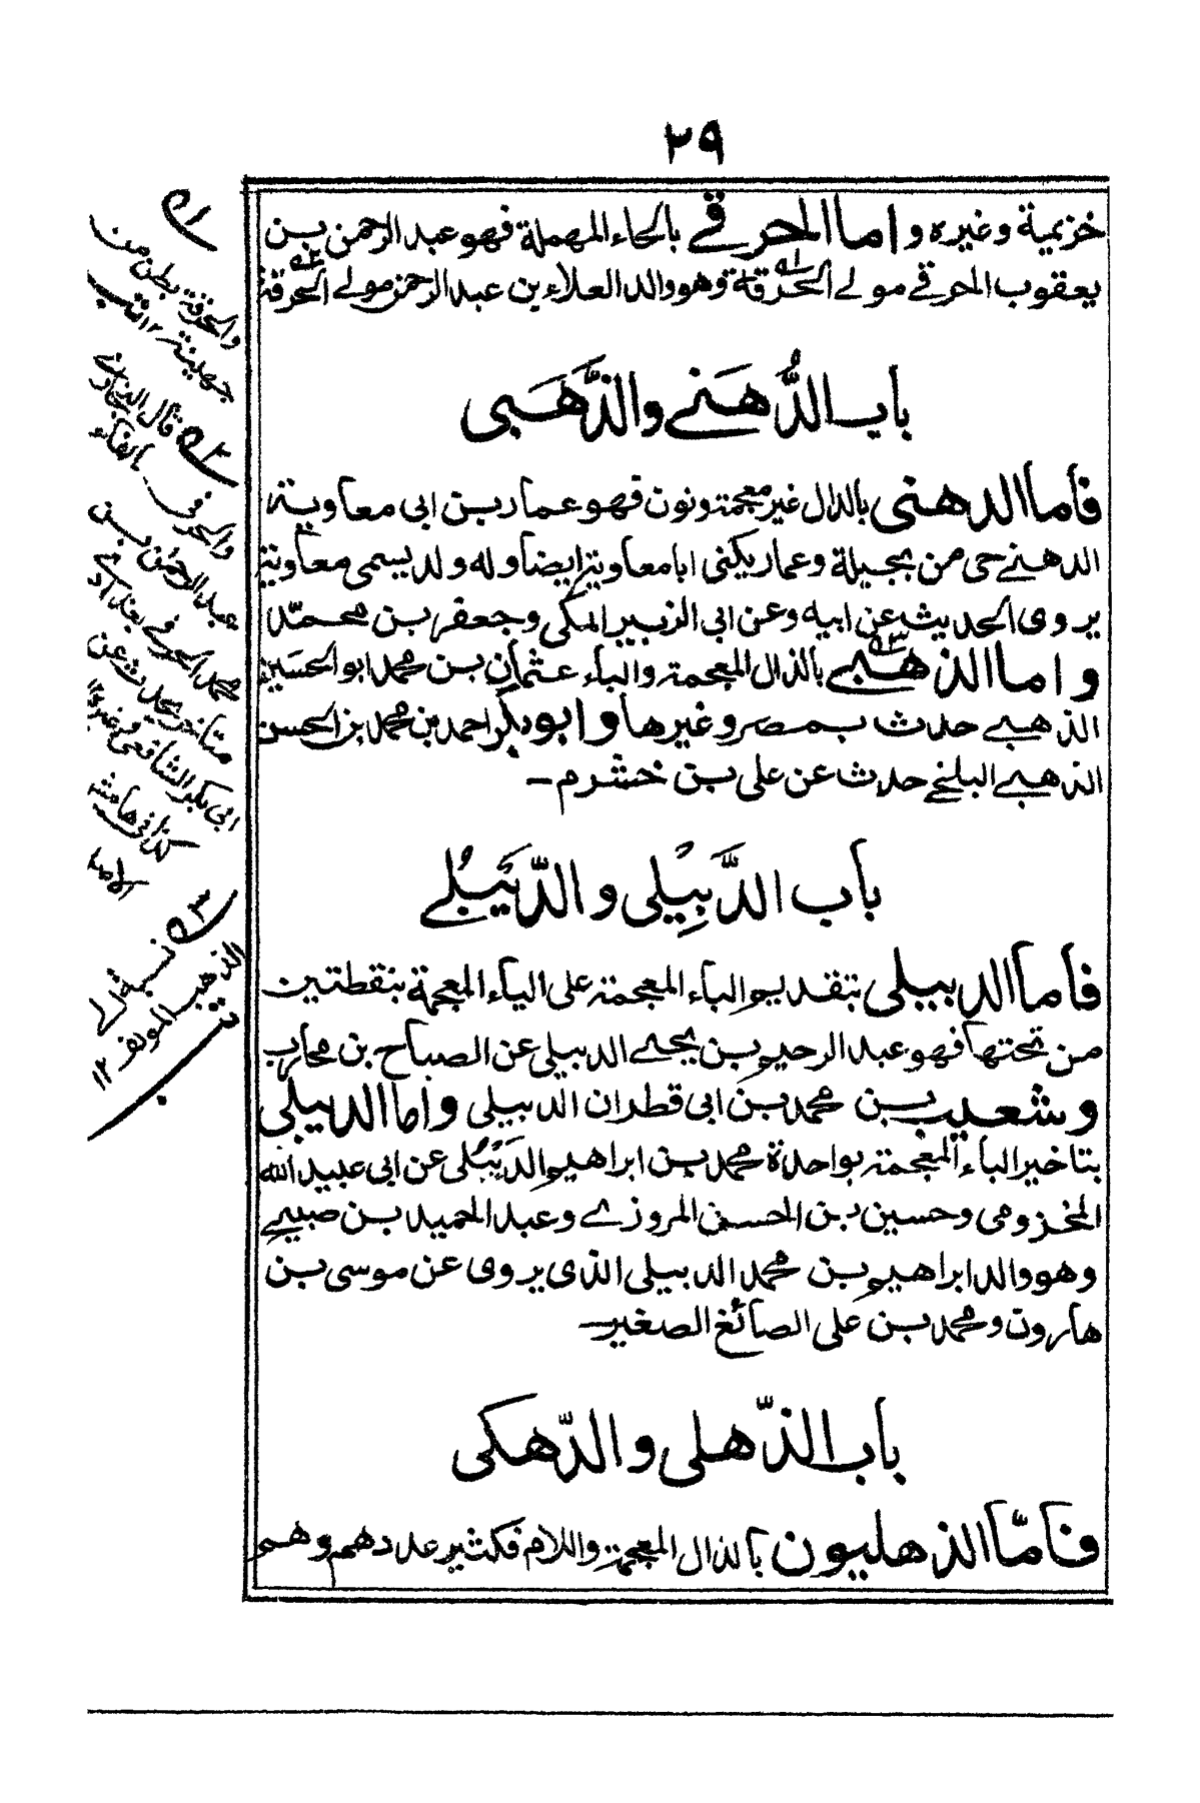 ٢٩
خزيمية وغيره واما الحرقے بالحاء المهملة فهو عبد الرحمن بن
يعقوب الحرقے مولے الحُرقة وهو والد العلاء بن عبد الرحمن مولے الحرقة
باب الدُّهَنے والذَّهَبی
فاما الدهنی بالدال غير معجمة ونون فهو عمار بن ابی معاوية
الدهنے حی من بجيلة وعمار يكنی ابا معاوية ايضا وله ولد يسمی معاوية
يروی الحديث عن ابيه وعن ابی الزبير المكی وجعفر بن محمّد
واما الذهبے بالذال المعجمة والباء عثمان بن محمد ابو الحسين
الذهبے حدث بمصر وغيرها وابو بكر احمد بن محمد بن الحسن
الذهبے البلخے حدث عن علی بن خشرم –
باب الدَّبِيُلی والدَّيَبُلے
فاما الدبيلی بتقديم الباء المعجمة علی الياء المعجمة بنقطتين
من تحتها فهو عبد الرحيم بن يحيے الدبيلی عن الصباح بن محارب
وشعيب بن محمد بن ابی قطران الدبيلی واما الديبلی
بتاخير الباء المعجمة بواحدة محمد بن ابراهيم الديَبُلی عن ابی عبيد الله
المخزومی وحسين بن الحسن المروزے وعبد الحميد بن صبيے
وهو والد ابراهيم بن محمد الدبيلی الذی يروی عن موسی بن
هارون ومحمد بن علی الصائغ الصغير –
باب الذّهلی والدّهكی
فامّا الذهليون بالذال المعجمة واللام فكثير عددهم وهم
١ه
والحرقة بطن من
جهينة ١٢
٢ه قال البخاری
والحرقی بالفاء
عبد الرحمن بن
محمد الحرفے بغدادے
متاخر يحدث عن
ابی بكر الشافعی وغيره
كذا فی هامش
الاصل
٣ه
الذهب